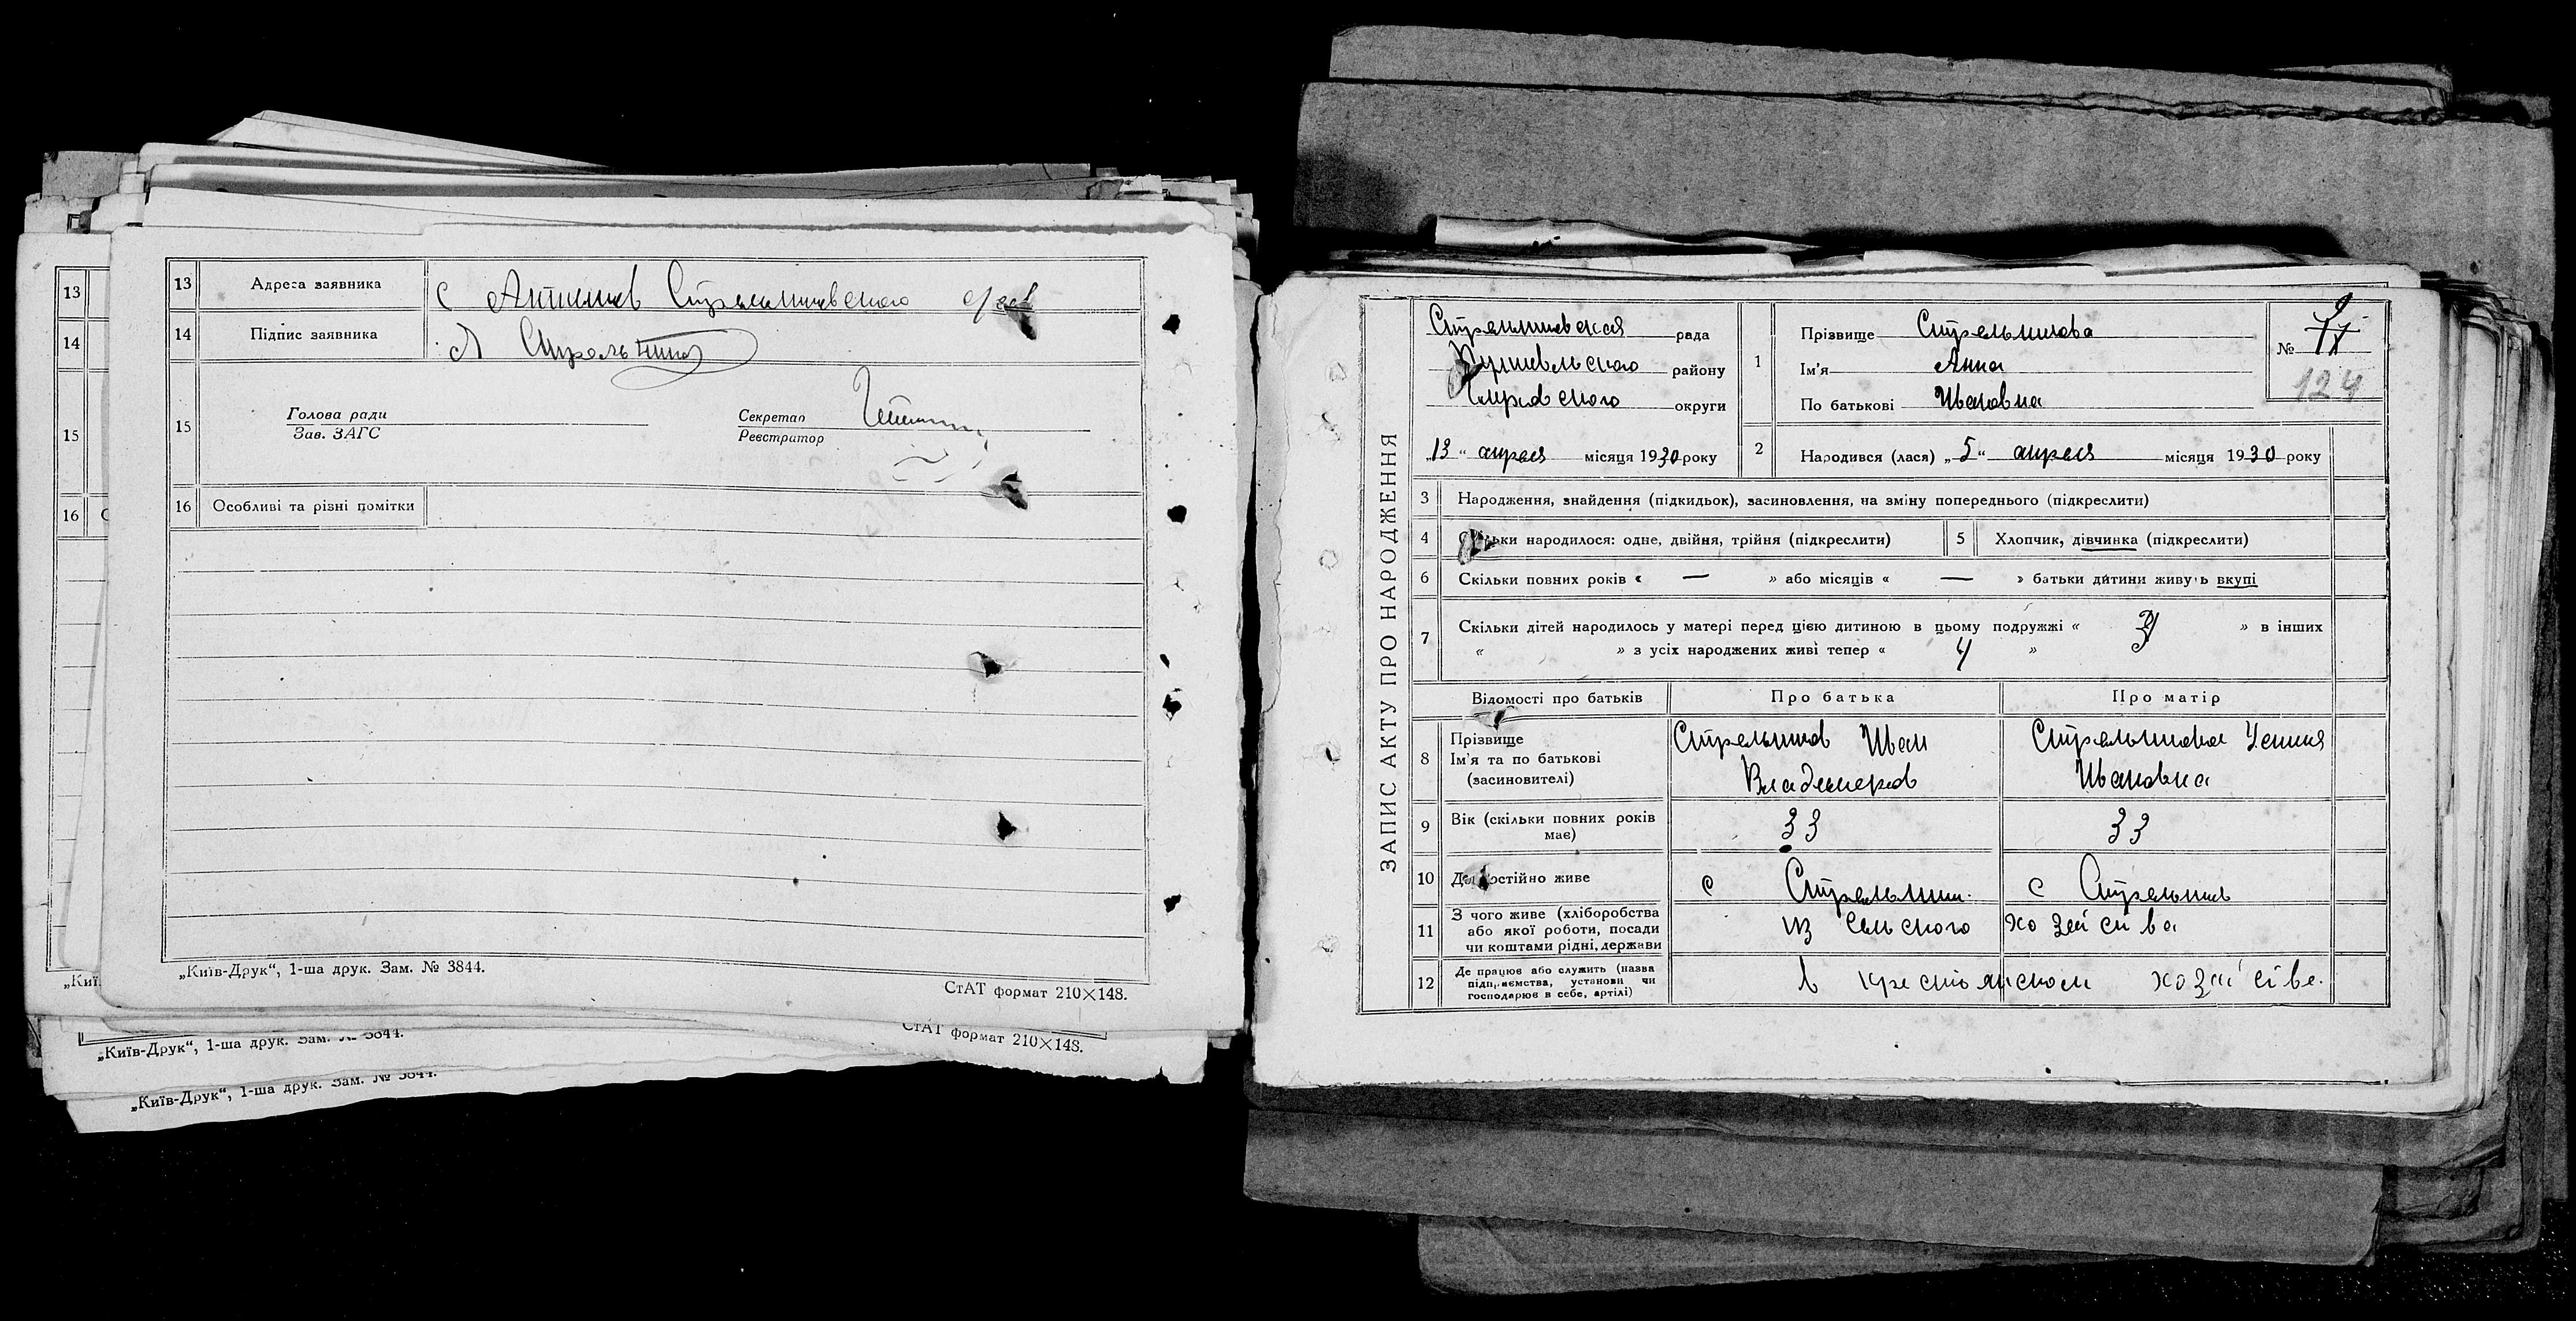 13 Адреса заявника с Антонов Стрельниковского с/сов
14 Підпис заявника А Стрельников
15 Голова ради
Зав. ЗАГС
Секретар
Реєстратор
16 Особливі та різні помітки
„Київ-Друк“, 1-ша друк. Зам. № 3844.
СтАТ формат 210×148.
13
14
15
16
„Киї
СтАТ формат 210×148.
„Київ-Друк“, 1-ша друк. Зам. № 3844.
„Київ-Друк“, 1-ша друк. Зам. № 3844.
ЗАПИС АКТУ ПРО НАРОДЖЕННЯ
Стрельниковская рада
Путивльского району
округи
„13“ апреля місяця 1930 року
№
124
1 Прізвище Стрельникова
Ім'я Анна
По батькові Ивановна
2 Народився (лася) „5“ апреля місяця 1930 року
3 Народження, знайдення (підкидьок), засиновлення, на зміну попереднього (підкреслити)
4 Скільки народилося: одне, двійня, трійня (підкреслити)
5 Хлопчик, дівчинка (підкреслити)
6 Скільки повних років « — » або місяців « — » батьки дитини живуть вкупі
7 Скільки дітей народилось у матері перед цією дитиною в цьому подружжі « » в інших
« » з усіх народжених живі тепер « 4 »
Відомості про батьків Про батька Про матір
8 Прізвище
Ім'я та по батькові
(засиновителі)
Стрельников Иван
Владимеров
Стрельникова
Ивановна
9 Вік (скільки повних років
має)
33 33
10 Де постійно живе с Стрельник. с Стрельников
11 З чого живе (хліборобства
або якої роботи, посади
чи коштами рідні, держави
из сельского хозейства
12 Де працює або служить (назва
підприємства, установи чи
господарює в себе, артілі)
в крестьянском хозяйстве.